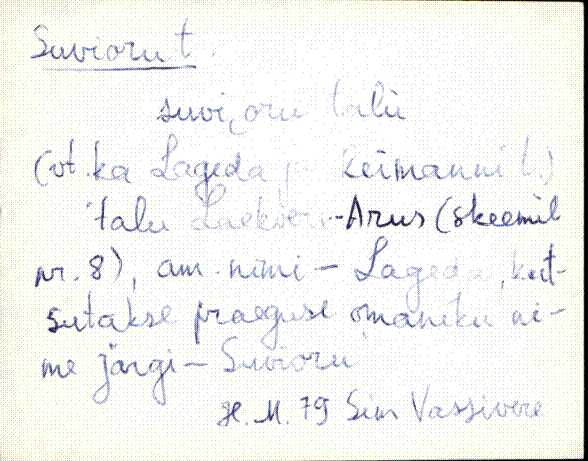 Suvioru t.
suvi͜oru talu
(vt. ka Lageda ja Reimanni t.)
talu Laekvere-Arus (skeemil
nr. 8), am. nimi – Lageda, kut-
sutakse praeguse omaniku ni-
me järgi – Suvioru
H. M. 79 Sim Vassivere